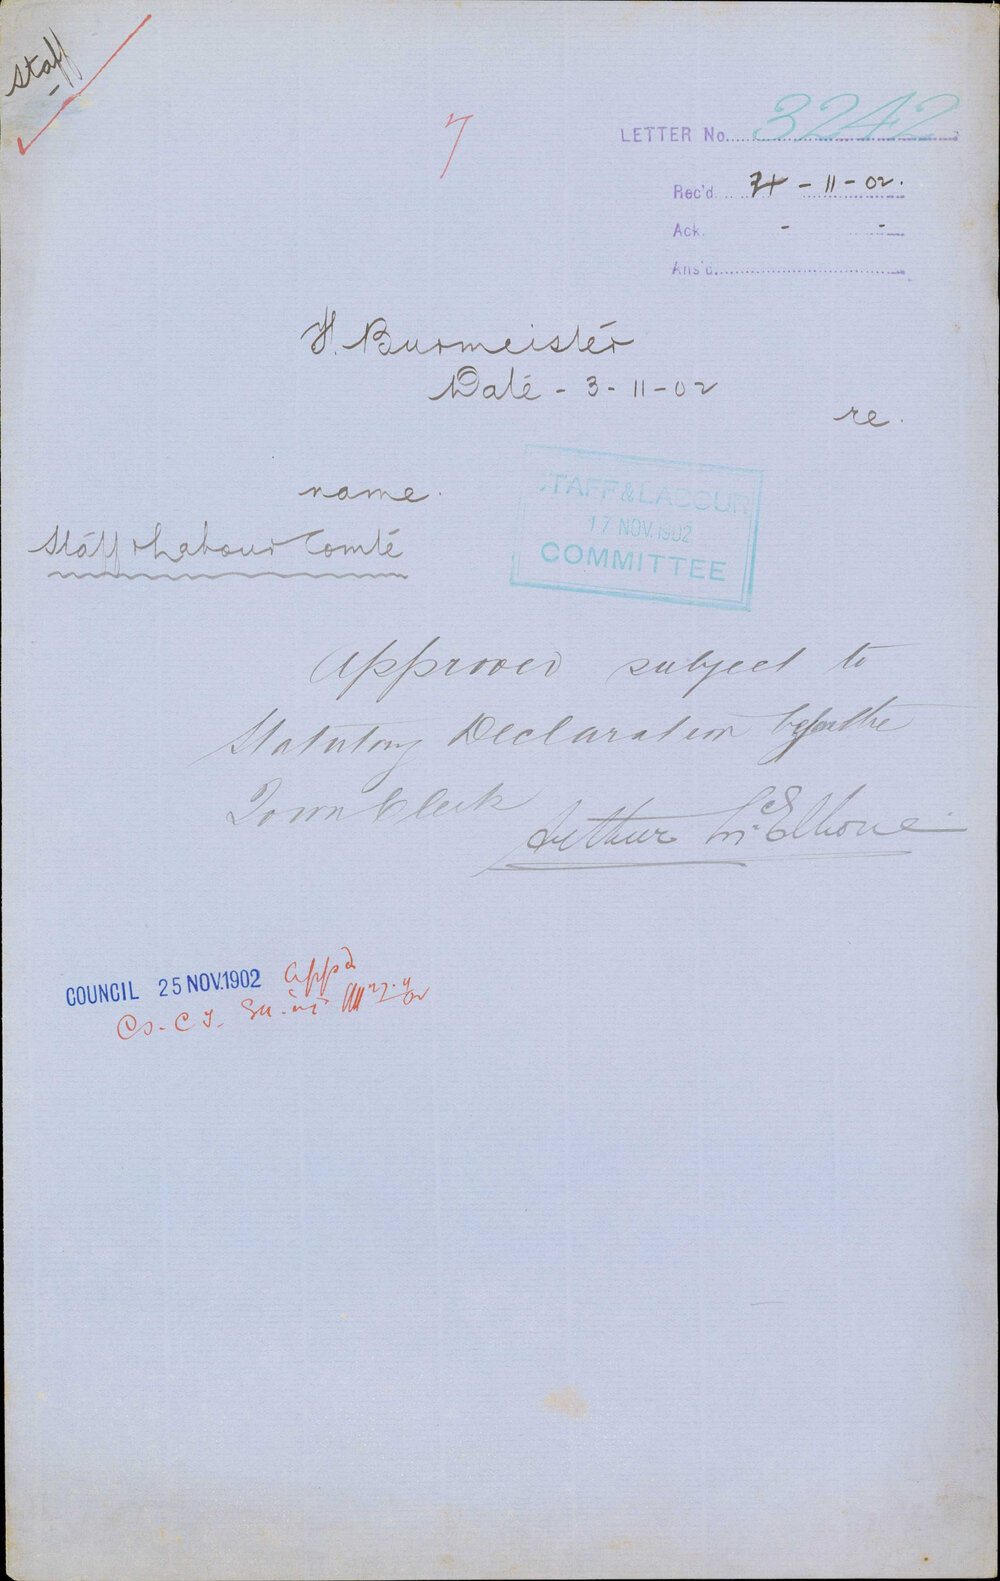 Staff
7
LETTER No. 3242
Rec'd - 11 - 02.
Ack. - -
Ans'd.
H. Burmeister
Date - 3 - 11 - 02
re.
name.
Staff & Labour Comte
STAFF & LABOUR
17 NOV. 1902
COMMITTEE
Approved subject to
Statutory Declaration before the
Town Clerk
Arthur McElhone
COUNCIL 25 NOV. 1902 appd